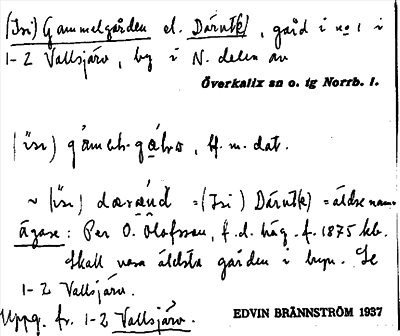 (I si) Gammelgården el. Därut(k), gård i no 1 i
1-2 Vallsjärv, by i N. delen av
Överkalix sn o. tg Norrb. l.
(ɩ̈sɩ) gámɐl-gɑ̨lɐn, bf. m. dat.
~ (ɩ̈sɩ) = (I si) Därut(k) = äldre namn
Ägare: Per O. Olofsson, f. d. häg. f. 1875 ktb.
Skall vara äldsta gården i byn. Se
1-2 Vallsjärv.
Uppg. fr. 1-2 Vallsjärv.
EDVIN BRÄNNSTRÖM 1937